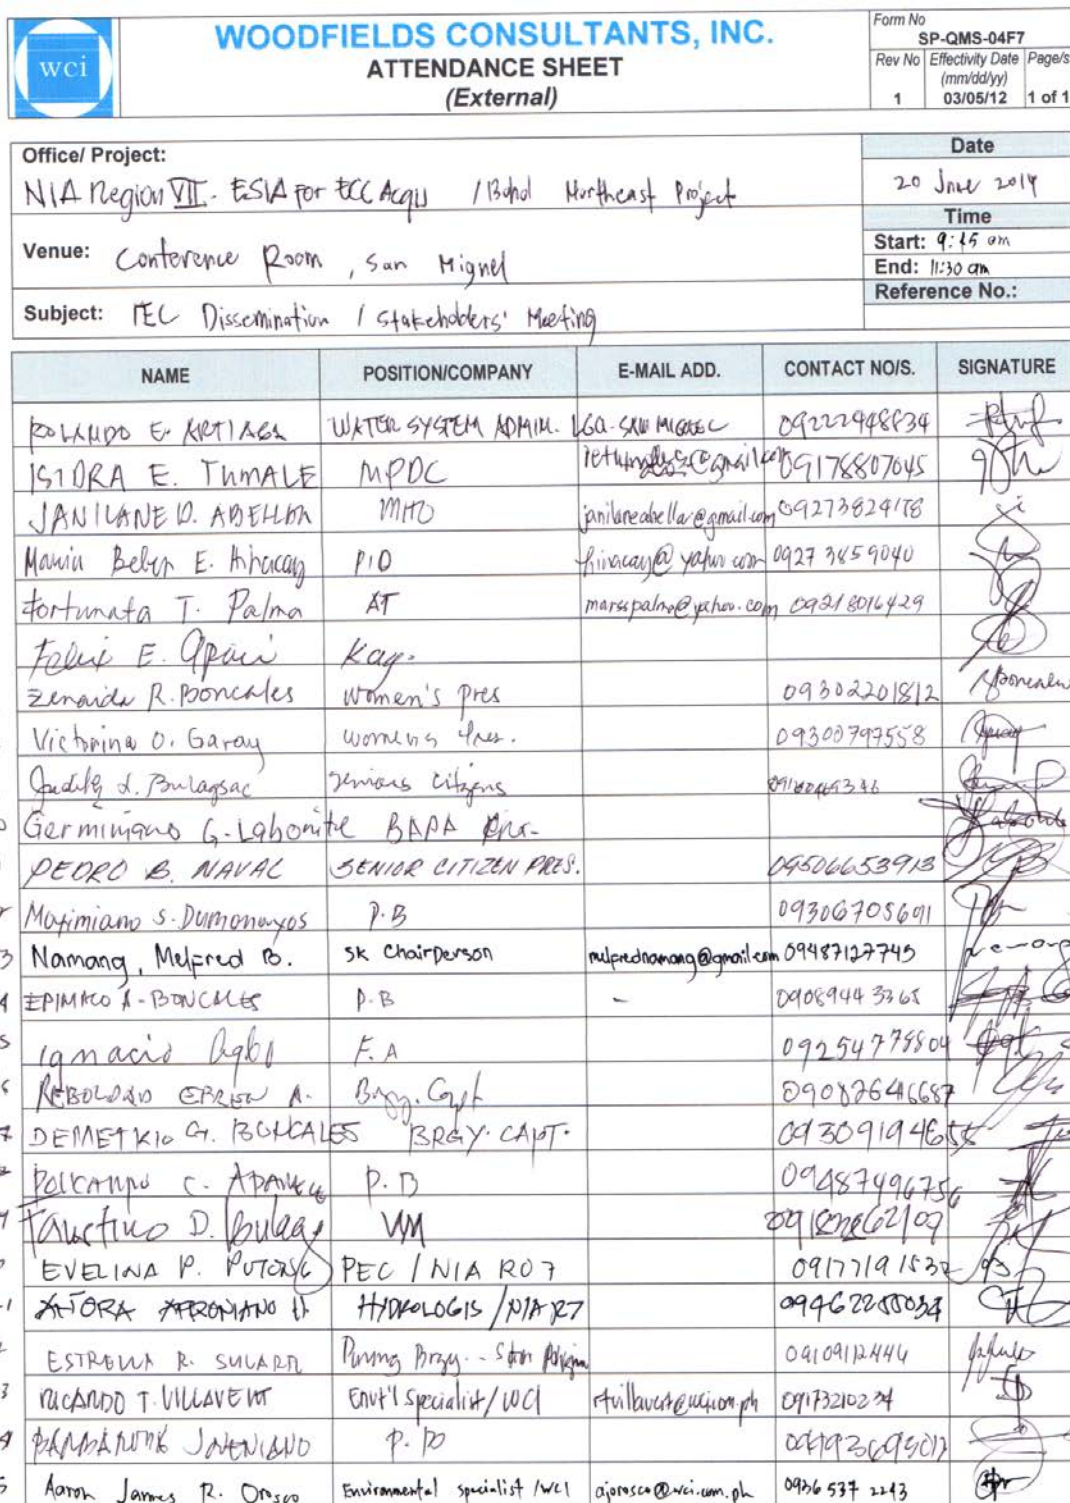 wci
WOODFIELDS CONSULTANTS, INC.
ATTENDANCE SHEET
(External)
Form No
SP-QMS-04F7
Rev No Effectivity Date (mm/dd/yy) Page/s
1 03/05/12 1 of 1
Office/ Project:
NIA Region VII - ESIA for ECC Acqu / Bohol Northeast Project
Date
20 June 2014
Time
Venue: Conference Room, San Miguel
Start: 9:15 am
End: 11:30 am
Reference No.:
Subject: IEC Dissemination / Stakeholders' Meeting
NAME POSITION/COMPANY E-MAIL ADD. CONTACT NO/S. SIGNATURE
ROLANDO E. ARTIAGA WATER SYSTEM ADMIN. LGU-SAN MIGUEL 09222948634
ISIDRA E. TUMALE MPDC 09178807045
JANILANE D. ABELLA MHO janilaneabella@gmail.com 09273824178
Maria Belen E. PIO @yahoo.com 0927 3859040
Fortunata T. Palma AT marsspalma@yahoo.com 09218016429
Felix E. Kag.
Zenaida R. Boncales women's pres 09302201812
Victorina O. Garay womens Pres. 09300797558
Judith L. Bulagsac seniors citizens
Germiniano G. Labonite BAPA
PEDRO B. NAVAL SENIOR CITIZEN PRES. 09506653913
Maximiano S. Dumonayos P.B 09306705691
3 Namang, Melfred B. SK Chairperson melfrednamang@gmail.com 09487127745
4 EPIMACO A. BONCALES P.B - 09089443365
5 Ignacio F.A 09254778804
6 REBOLDAD A. Brgy. Capt 09087646687
7 DEMETRIO G. BONCALES BRGY. CAPT. 09309194655
POLICARPO C. P.B 09487496756
Faustino D. Bulag VM
EVELINA P. PEC / NIA RO7 09177191532
II HYDROLOGIS / NIA R7
ESTRELLA R. Brgy. 09109112444
3 RICARDO T. VILLAVERT Envt'l Specialist / WCI rtvillavert@wci.com.ph 09173210234
P.B
5 Aaron James R. Orosco Environmental specialist / WCI ajorosco@wci.com.ph 0936 537 2243